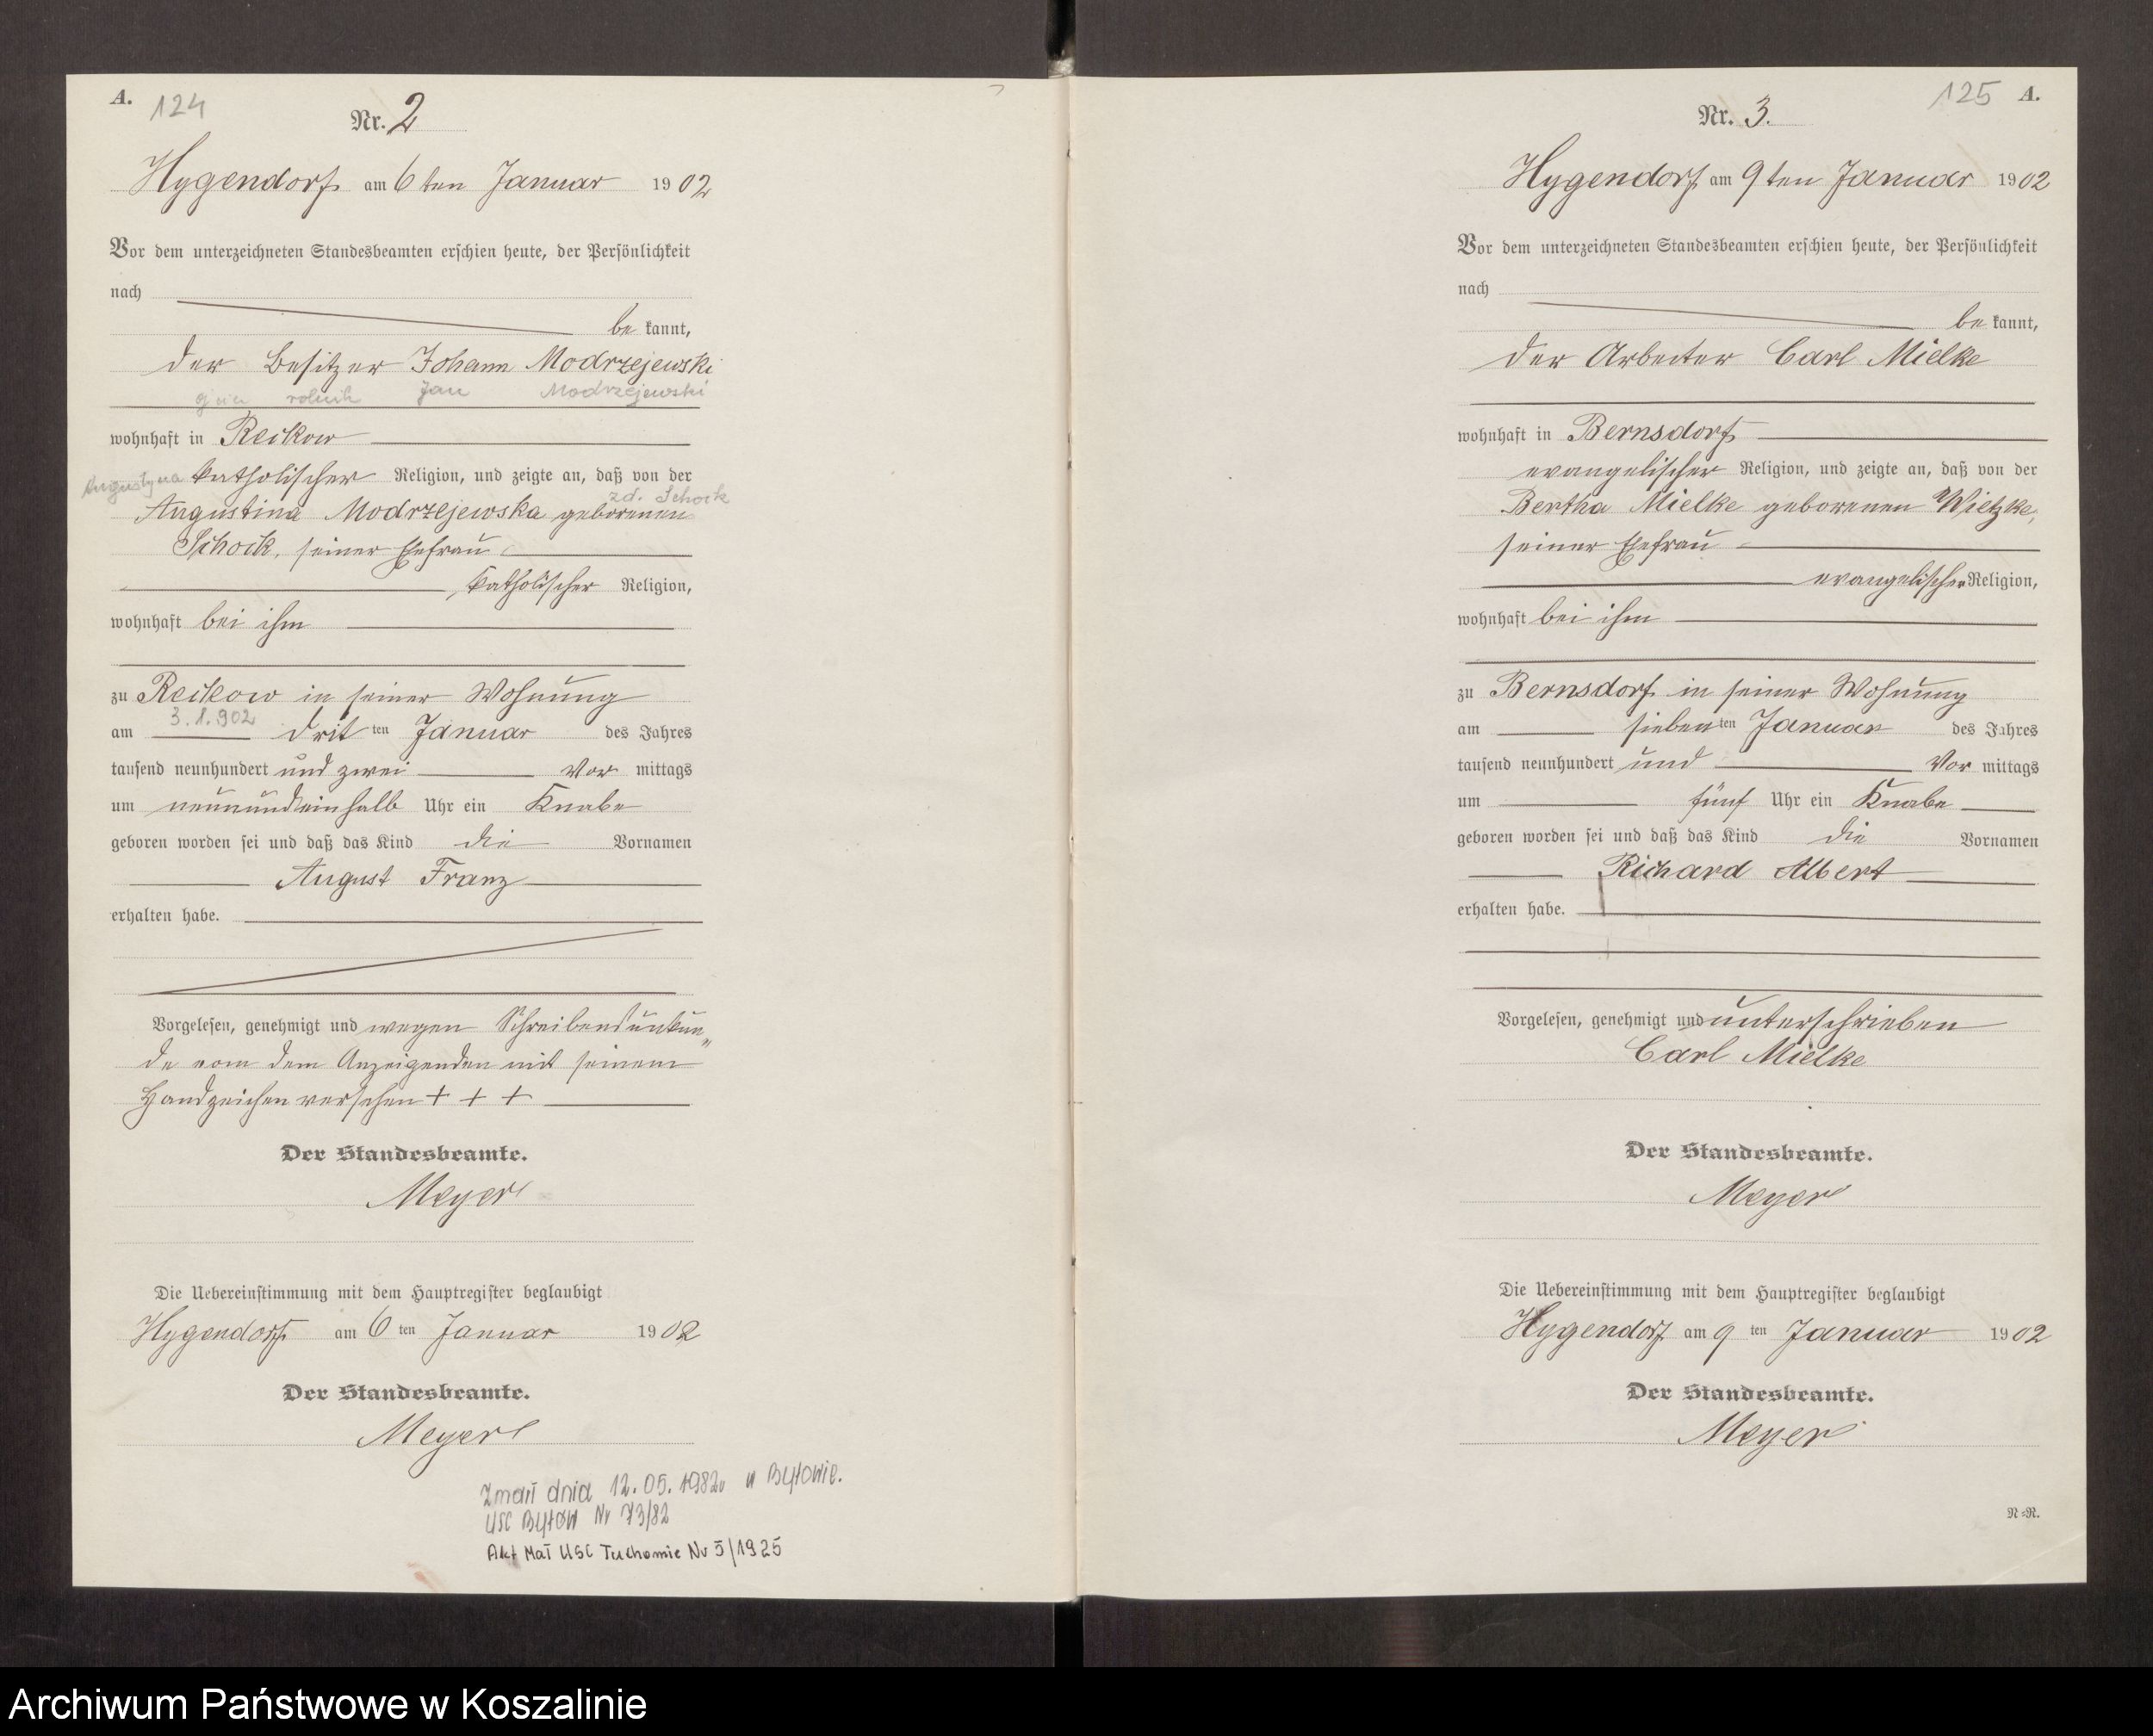 A. 124
Nr. 2
Hygendorf am 6ten Januar 1902
Vor dem unterzeichneten Standesbeamten erschien heute, der Persönlichkeit
nach
be kannt,
der Besitzer Johann Modrzejewski
rolnik Jan Modrzejewski
wohnhaft in Reckow
Augustyna katholischer Religion, und zeigte an, daß von der
zd. Schock
Augustina Modrzejewska geborenen
Schock, seiner Ehefrau
katholischer Religion,
wohnhaft bei ihm
zu Reckow in seiner Wohnung
3.1.902
am drit ten Januar des Jahres
tausend neunhundert und zwei Vor mittags
um neunundeinhalb Uhr ein Knabe
geboren worden sei und daß das Kind die Vornamen
August Franz
erhalten habe.
Vorgelesen, genehmigt und wegen Schreibensunkun„
de vom dem Anzeigenden mit seinem
Handzeichen versehen + + +
Der Standesbeamte.
Meyer
Die Uebereinstimmung mit dem Hauptregister beglaubigt
Hygendorf am 6 ten Januar 1902
Der Standesbeamte.
Meyer
Zmarł dnia 12.05.1982 w Bytowie.
USC Bytów Nr 73/82
Akt Mał USC Tuchomie Nr 5/1925
125 A.
Nr. 3.
Hygendorf am 9ten Januar 1902
Vor dem unterzeichneten Standesbeamten erschien heute, der Persönlichkeit
nach
be kannt,
der Arbeiter Carl Mielke
wohnhaft in Bernsdorf
evangelischer Religion, und zeigte an, daß von der
Bertha Mielke geborenen Wietzke,
seiner Ehefrau
evangelischer Religion,
wohnhaft bei ihm
zu Bernsdorf in seiner Wohnung
am sieben ten Januar des Jahres
tausend neunhundert und Vor mittags
um fünf Uhr ein Knabe
geboren worden sei und daß das Kind die Vornamen
Richard Albert
erhalten habe.
Vorgelesen, genehmigt und unterschrieben
Carl Mielke
Der Standesbeamte.
Meyer
Die Uebereinstimmung mit dem Hauptregister beglaubigt
Hygendorf am 9 ten Januar 1902
Der Standesbeamte.
Meyer
N=R.
Archiwum Państwowe w Koszalinie